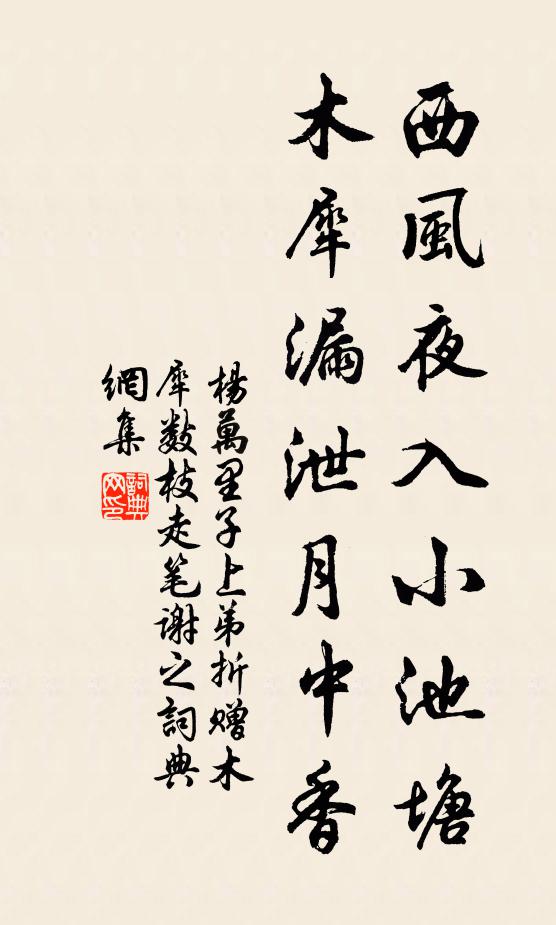 西風夜入小池塘
木犀漏泄月中香
楊萬里子上弟折贈木
犀數枝走笔謝之詞典
網集
詞典
网印